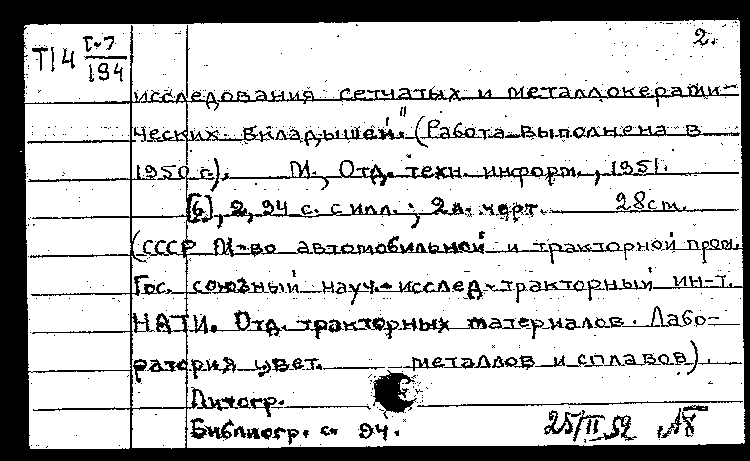 2.
Т14 Г-7/194
исследования сетчатых и металлокерами-
ческих вкладышей." (Работа выполнена в
1950 г.). М., Отд. техн. информ., 1951.
[6], 2, 94 с. с илл.; 2 л. черт. 28 cm.
(СССР М-во автомобильной и тракторной пром.
Гос. союзный науч.-исслед. тракторный ин-т.
НАТИ. Отд. тракторных материалов. Лабо-
ратория цвет. металлов и сплавов).
Литогр.
Библиогр. с. 94.
25/II 52